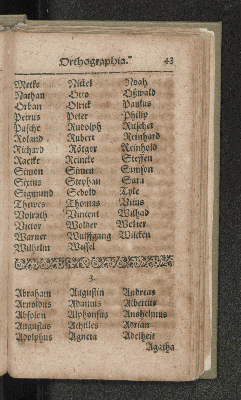 Orthographia. 43
Metke Nickel Noah
Nathan Otto Oßwald
Orban Olrick Paulus
Petrus Peter Philip
Pasche Rudolph Ritscher
Roland Rubert Reinhard
Richard Rötger Reinhold
Raetke Reincke Steffen
Simen Simon Simson
Sixtus Stephan Sara
Sigmund Sebold Tyle
Thewes Thomas Titus
Volrath Vincent Wilhad
Victor Wolder Wolter
Warner Wulffgang Wilcken
Wilhelm Wessel
3.
Abraham Augustin Andreas
Arnoldus Adamus Albertus
Absolon Alphonsus Anshelmus
Augustus Achilles Adrian
Adolphus Agneta Adelheit
Agatha